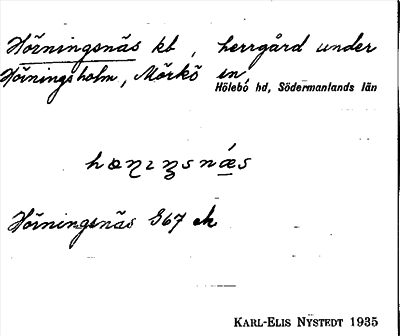 Hörningsnäs kb, herrgård under
Hörningsholm, Mörkö sn,
Hölebo hd, Södermanlands län
Hörningsnäs G67 ek
KARL-ELIS NYSTEDT 1935